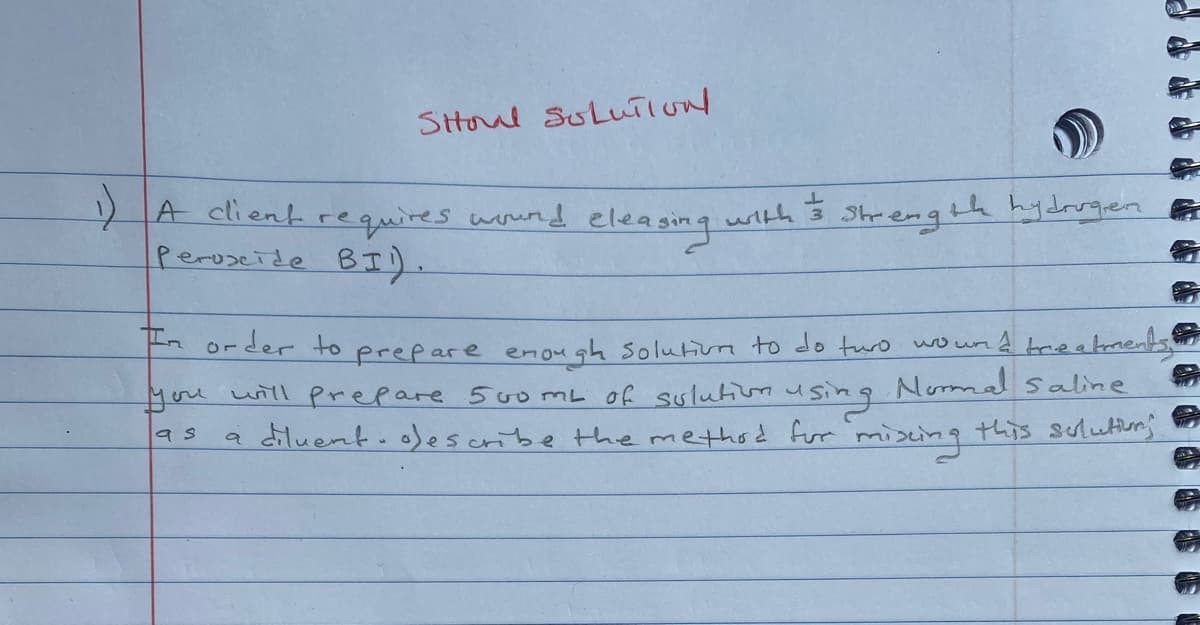 SHOW SOLUTION
1) A client requires wound cleasing with 1/3 strength hydrogen
peroxide BID.
In order to prepare enough solution to do two wound treatments,
you will prepare 500 mL of solution using Normal saline
as a diluent. Describe the method for mixing this solution;